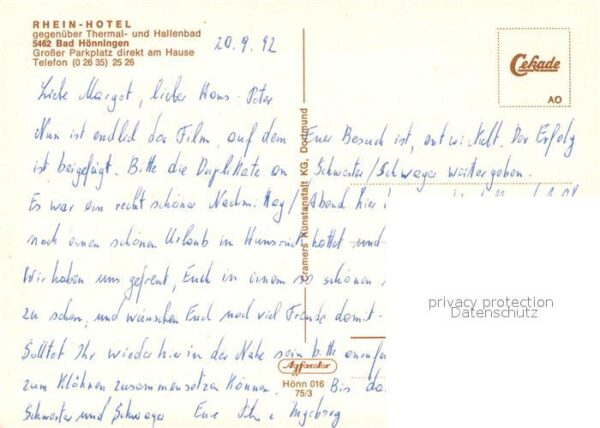 RHEIN-HOTEL
gegenüber Thermal- und Hallenbad
5462 Bad Hönningen
Großer Parkplatz direkt am Hause
Telefon (0 26 35) 25 26
20.9.92
Cekade
AO
Liebe Margot, lieber Hans-Peter
Nun ist endlich der Film, auf dem Euer Besuch ist, entwickelt. Der Erfolg
ist beigefügt. Bitte die Duplikate an Schwester/Schwager weitergeben.
Es war ein recht schöner Nachmittag/Abend hier
noch einen schönen Urlaub im Hunsrück hattet und
Wir haben uns gefreut, Euch in einem so schönen
zu sehen, und wünschen Euch noch viel Freude damit.
Solltet Ihr wieder hier in der Nähe sein bitte anrufen
zum Klöhnen zusammensetzen können. Bis
Schwester und Schwager Eure Ingeborg
Cramers Kunstanstalt KG, Dortmund
Agfacolor
Hönn 016
75/3
privacy protection
Datenschutz